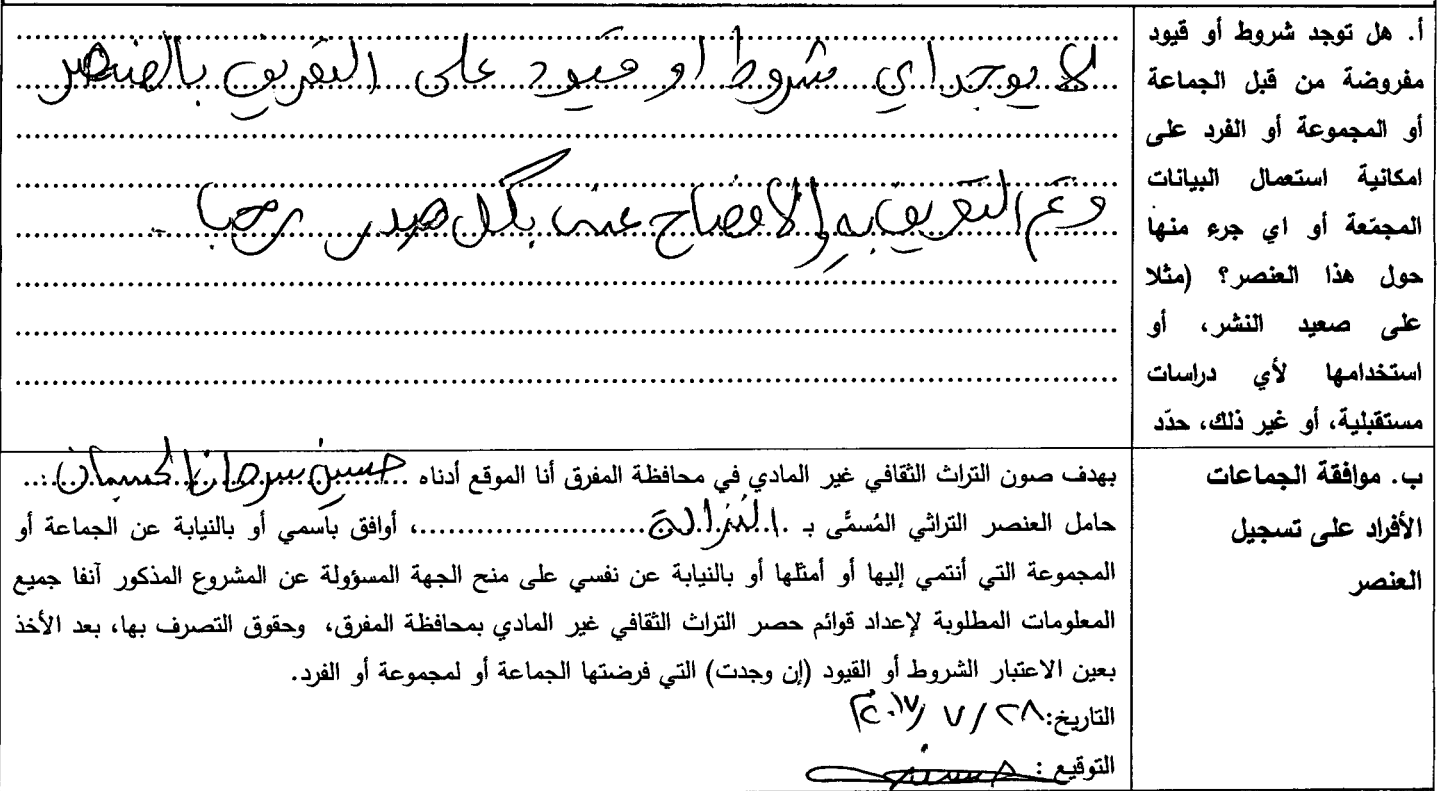 أ. هل توجد شروط أو قيود
مفروضة من قبل الجماعة
أو المجموعة أو الفرد على
امكانية استعمال البيانات
المجمّعة أو اي جرء منها
حول هذا العنصر؟ (مثلا
على صعيد النشر، أو
استخدامها لأي دراسات
مستقبلية، أو غير ذلك، حدّد
لا يوجد اي شروط او قيود على التعريف بالعنصر
وتم التعريف به والافصاح عنه بكل صدر رحب
ب. موافقة الجماعات
الأفراد على تسجيل
العنصر
بهدف صون التراث الثقافي غير المادي في محافظة المفرق أنا الموقع أدناه حسين سرحان الحسبان
حامل العنصر التراثي المُسمَّى بـ النزالة، أوافق باسمي أو بالنيابة عن الجماعة أو
المجموعة التي أنتمي إليها أو أمثلها أو بالنيابة عن نفسي على منح الجهة المسؤولة عن المشروع المذكور آنفا جميع
المعلومات المطلوبة لإعداد قوائم حصر التراث الثقافي غير المادي بمحافظة المفرق، وحقوق التصرف بها، بعد الأخذ
بعين الاعتبار الشروط أو القيود (إن وجدت) التي فرضتها الجماعة أو لمجموعة أو الفرد.
التاريخ: ٢٨ / ٧ / ٢٠١٧م
التوقيع :